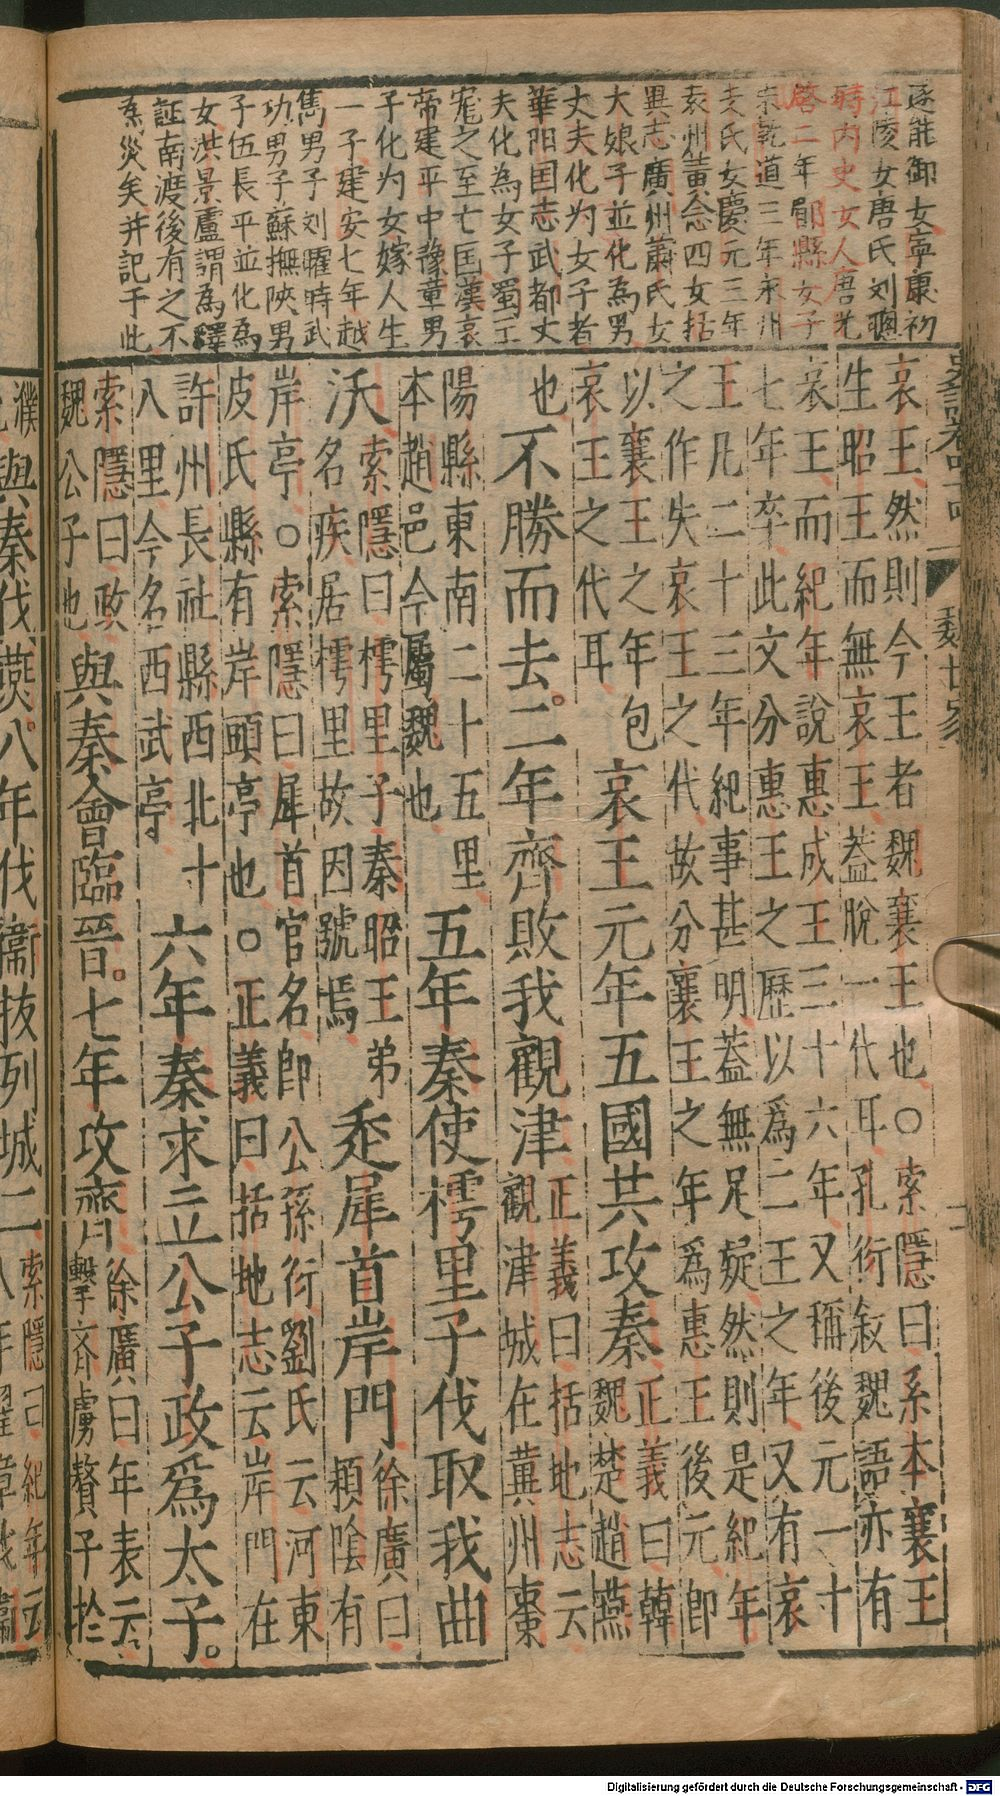 遂能御女寧康初
江陵女唐氏刘聰
時内史女人唐光
啓二年郿縣女子
宋乾道三年永州
支氏女慶元三年
袁州黄念四女括
異志廣州蕭氏女
大娘子並化為男
丈夫化为女子者
華阳国志武都丈
夫化為女子蜀王
寵之至亡国漢哀
帝建平中豫章男
子化为女嫁人生
一子建安七年越
雋男子刘曜時武
功男子蘇撫陝男
子伍長平並化為
女洪景盧謂為釋
証南渡後有之不
為災矣并記于此
魏世家
哀王然則今王者魏襄王也○索隱曰系本襄王
生昭王而無哀王蓋脫一代耳孔衍叙魏語亦有
哀王而紀年說惠成王三十六年又稱後元一十
七年卒此文分惠王之歷以爲二王之年又有哀
王凡二十三年紀事甚明蓋無足疑然則是紀年
之作失哀王之代故分襄王之年爲惠王後元即
以襄王之年包
哀王之代耳
哀王元年五國共攻秦
正義曰韓
魏楚趙燕
也
不勝而去。二年齊敗我觀津
正義曰括地志云
觀津城在冀州棗
陽縣東南二十五里
本趙邑今屬魏也
五年秦使樗里子伐取我曲
沃
索隱曰樗里子秦昭王弟
名疾居樗里故因號焉
走犀首岸門
徐廣曰
頴陰有
岸亭○索隱曰犀首官名即公孫衍劉氏云河東
皮氏縣有岸頭亭也○正義曰括地志云岸門在
許州長社縣西北十
八里今名西武亭
六年秦求立公子政爲太子。
索隱曰政
魏公子也
與秦會臨晉。七年攻齊
徐廣曰年表云
擊齊虜贅子於
濮
與秦伐燕。八年伐衞拔列城二
索隱曰紀年云
八年翟章伐衞
Digitalisierung gefördert durch die Deutsche Forschungsgemeinschaft - DFG